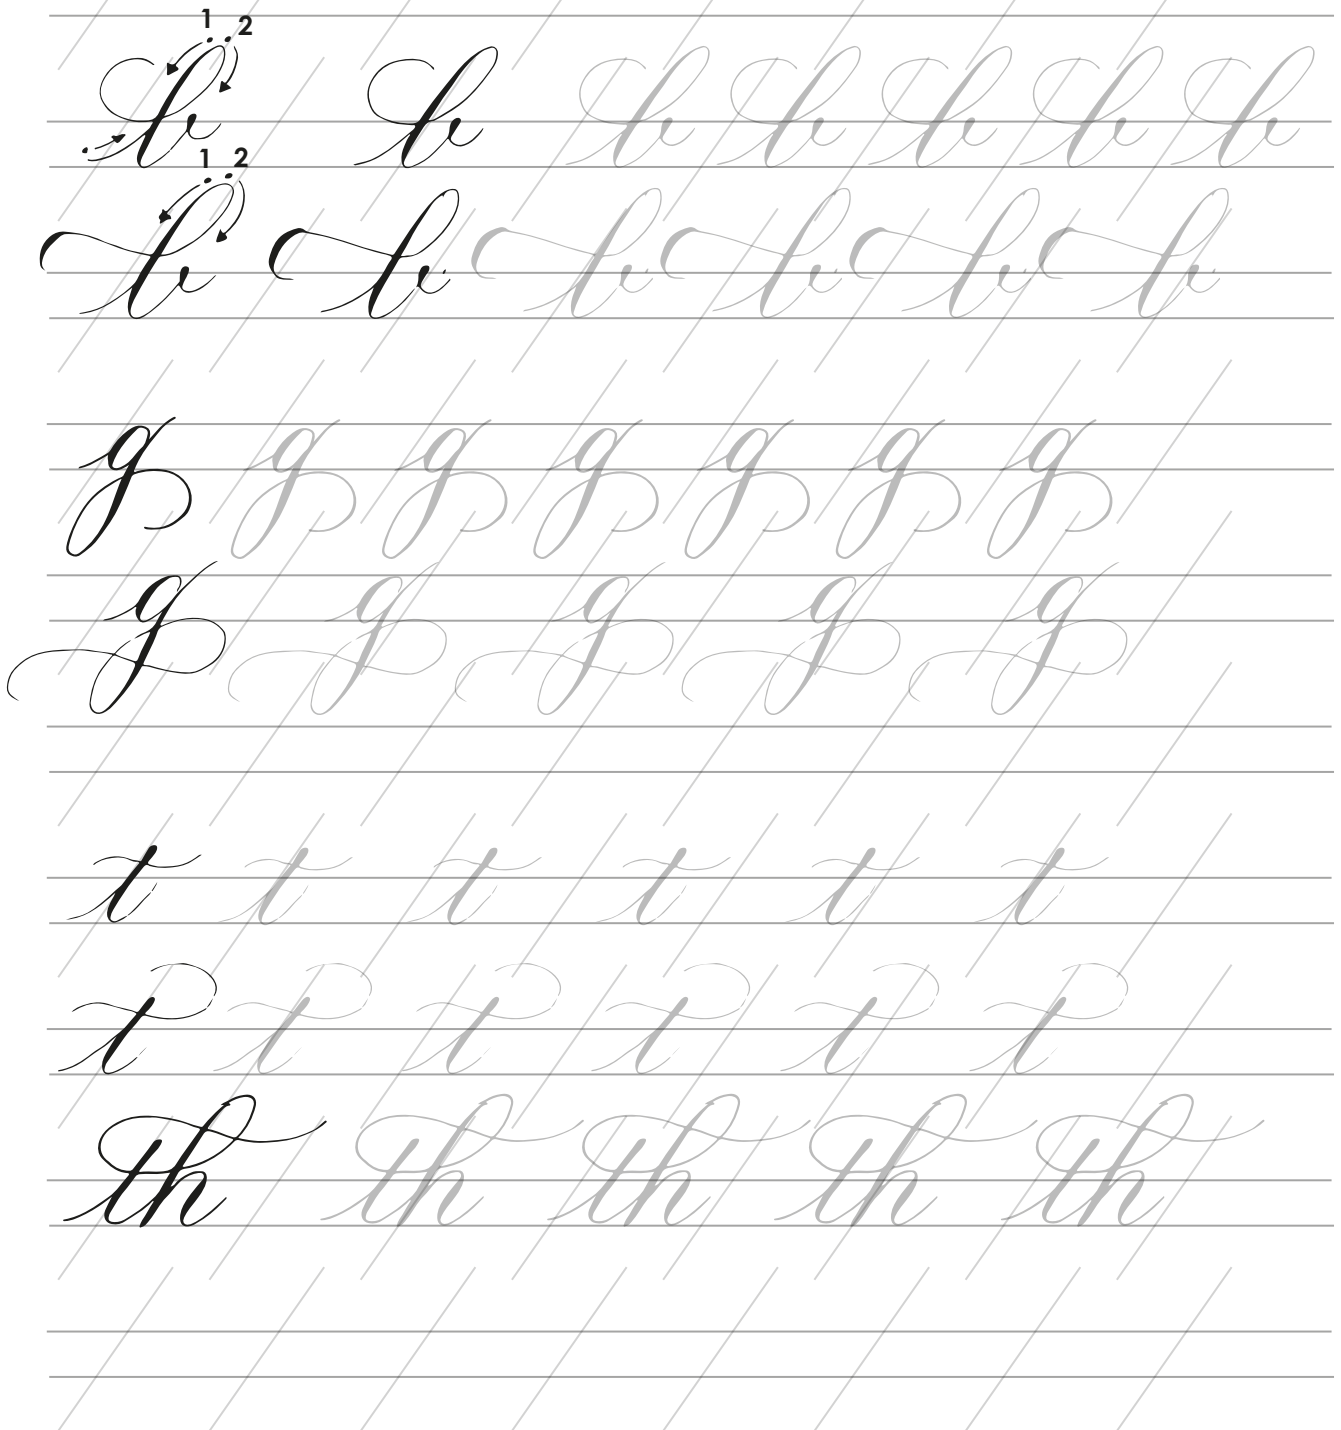 1 2
b b b b b b b
1 2
b b b b b b
g g g g g g g
g g g g g
t t t t t t
t t t t t t
th th th th th